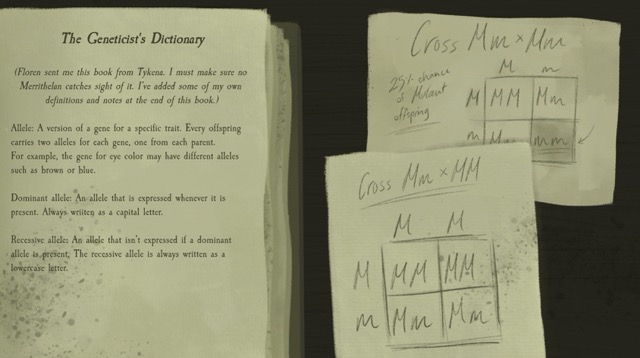 The Geneticist's Dictionary
(Floren sent me this book from Tykena. I must make sure no
Merrithelan catches sight of it. I've added some of my own
definitions and notes at the end of this book.)
Allele: A version of a gene for a specific trait. Every offspring
carries two alleles for each gene, one from each parent.
For example, the gene for eye color may have different alleles
such as brown or blue.
Dominant allele: An allele that is expressed whenever it is
present. Always written as a capital letter.
Recessive allele: An allele that isn't expressed if a dominant
allele is present. The recessive allele is always written as a
lowercase letter.
Cross Mm × Mm
25% chance
of Mutant
offspring
M m
M MM Mm
m Mm mm
Cross Mm × MM
M M
M MM MM
m Mm Mm